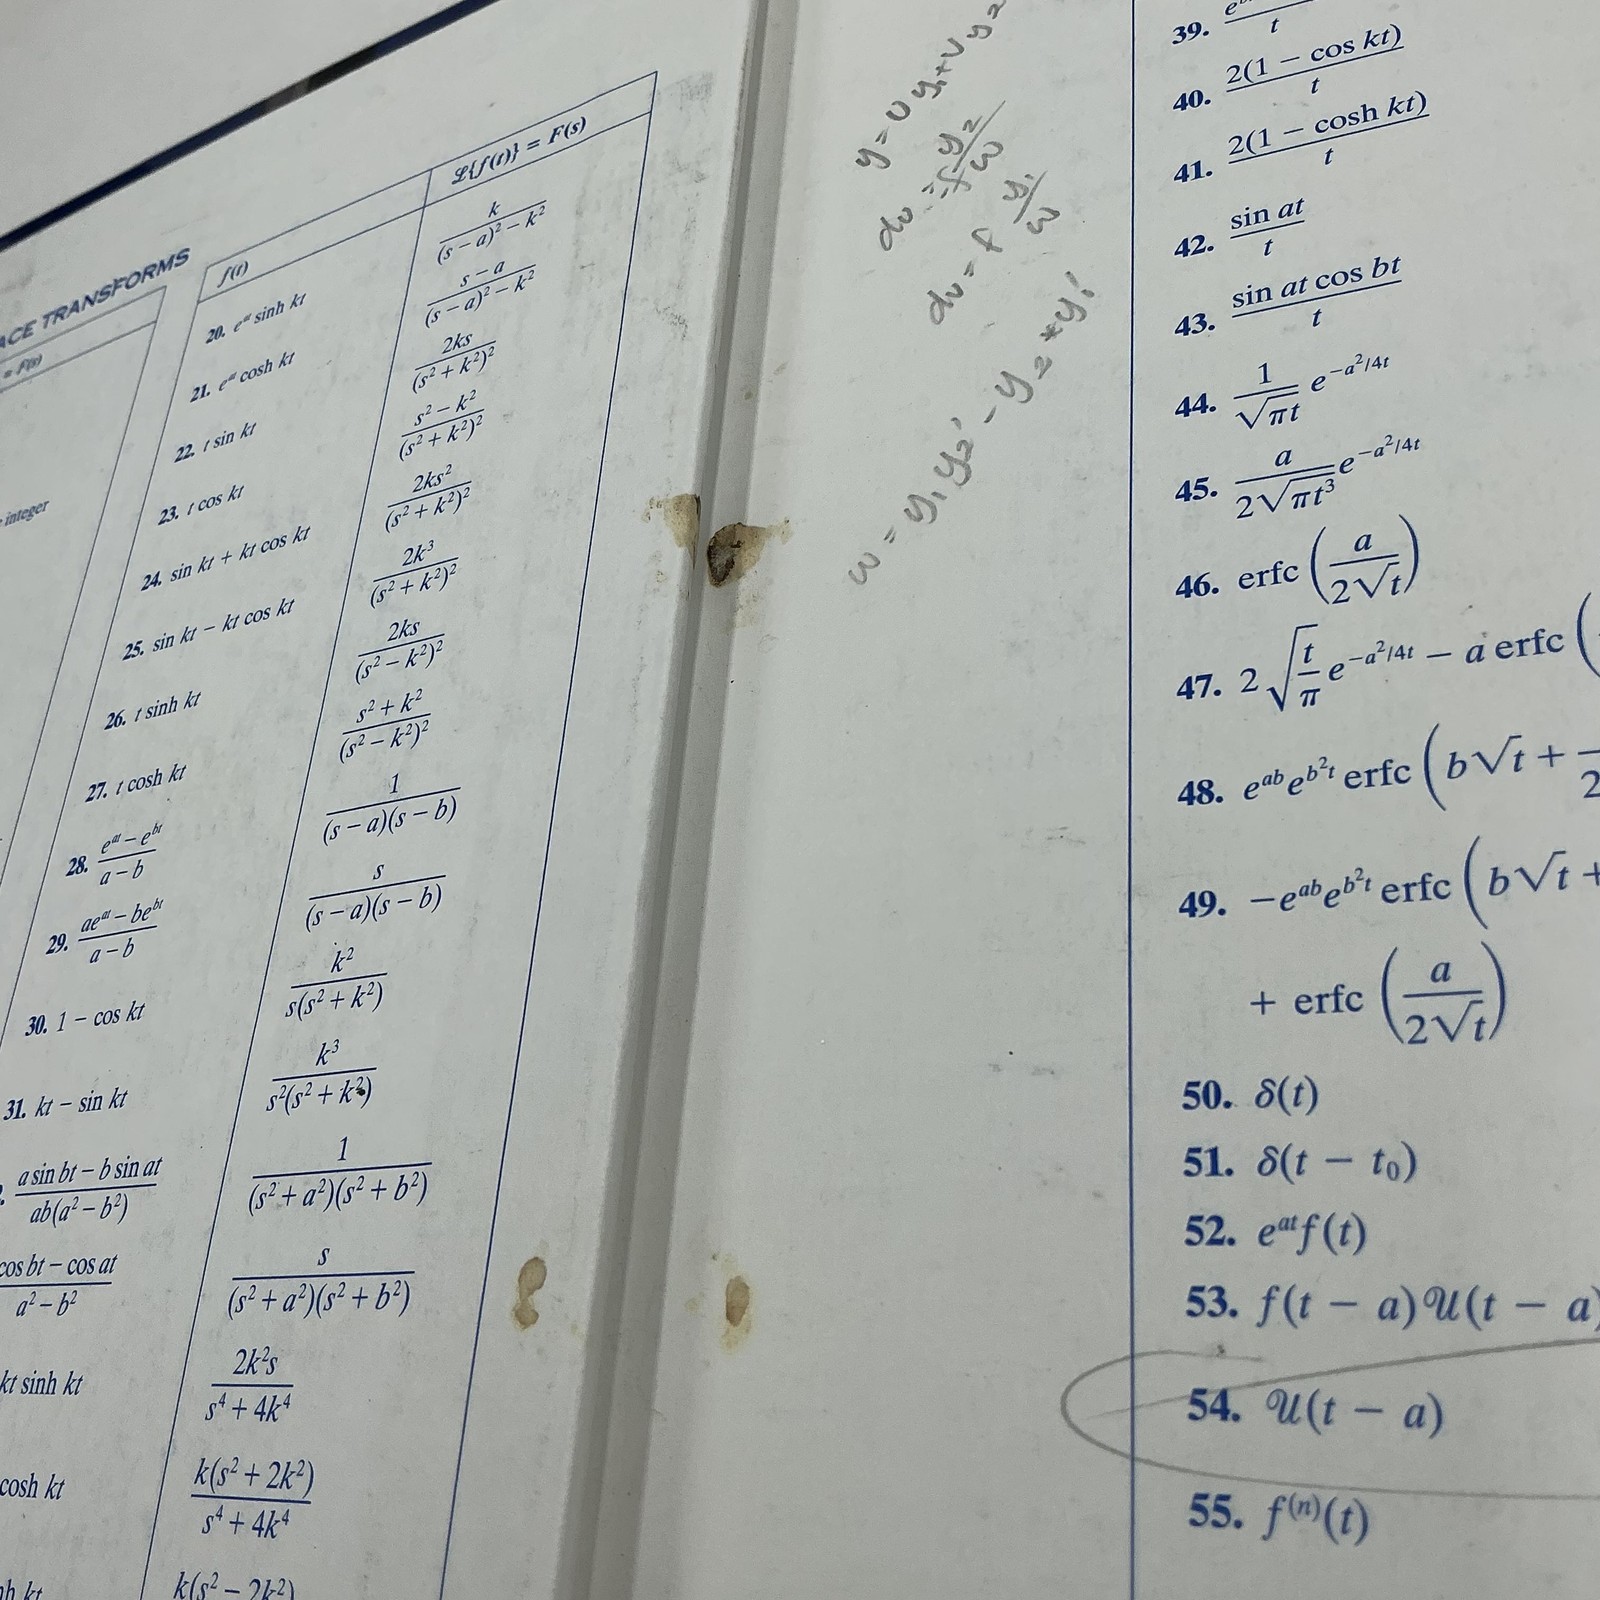 ACE TRANSFORMS
= F(s)
integer
f(t) ℒ{f(t)} = F(s)
20. e^{at} sinh kt k/((s − a)² − k²)
21. e^{at} cosh kt (s − a)/((s − a)² − k²)
22. t sin kt 2ks/(s² + k²)²
23. t cos kt (s² − k²)/(s² + k²)²
24. sin kt + kt cos kt 2ks²/(s² + k²)²
25. sin kt − kt cos kt 2k³/(s² + k²)²
26. t sinh kt 2ks/(s² − k²)²
27. t cosh kt (s² + k²)/(s² − k²)²
28. (e^{at} − e^{bt})/(a − b) 1/((s − a)(s − b))
29. (ae^{at} − be^{bt})/(a − b) s/((s − a)(s − b))
30. 1 − cos kt k²/(s(s² + k²))
31. kt − sin kt k³/(s²(s² + k²))
(a sin bt − b sin at)/(ab(a² − b²)) 1/((s² + a²)(s² + b²))
(cos bt − cos at)/(a² − b²) s/((s² + a²)(s² + b²))
kt sinh kt 2k²s/(s⁴ + 4k⁴)
cosh kt k(s² + 2k²)/(s⁴ + 4k⁴)
kt k(s² − 2k²)
y = u y₁ + v y₂
y₂/w
dv = f y₁/w
w = y₁ y₂' − y₂ * y₁'
39. t
40. 2(1 − cos kt)/t
41. 2(1 − cosh kt)/t
42. sin at/t
43. sin at cos bt/t
44. 1/√(πt) e^{−a²/4t}
45. a/(2√(πt³)) e^{−a²/4t}
46. erfc (a/(2√t))
47. 2 √(t/π) e^{−a²/4t} − a erfc (
48. e^{ab} e^{b²t} erfc (b√t + 2
49. −e^{ab} e^{b²t} erfc (b√t +
+ erfc (a/(2√t))
50. δ(t)
51. δ(t − t₀)
52. e^{at} f(t)
53. f(t − a) 𝒰(t − a)
54. 𝒰(t − a)
55. f^{(n)}(t)